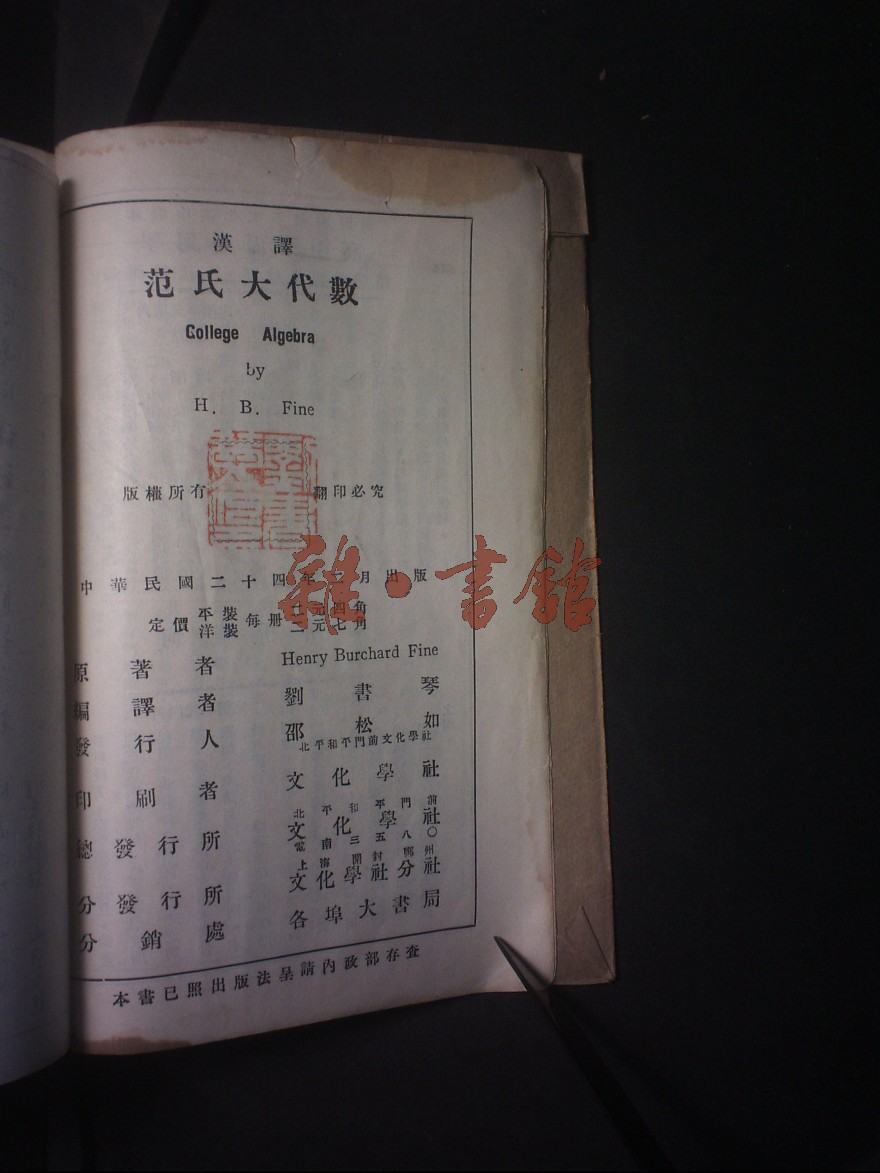 漢譯
范氏大代數
College Algebra
by
H. B. Fine
版權所有 翻印必究
中華民國二十四年 月出版
定價 平裝 每冊 元四角
洋裝 二元七角
原著者 Henry Burchard Fine
編譯者 劉書琴
發行人 邵松如
北平和平門前文化學社
印刷者 文化學社
北平和平門前
總發行所 文化學社
電南三五八〇
上海開封鄭州
分發行所 文化學社分社
分銷處 各埠大書局
本書已照出版法呈請內政部存查
雜·書館